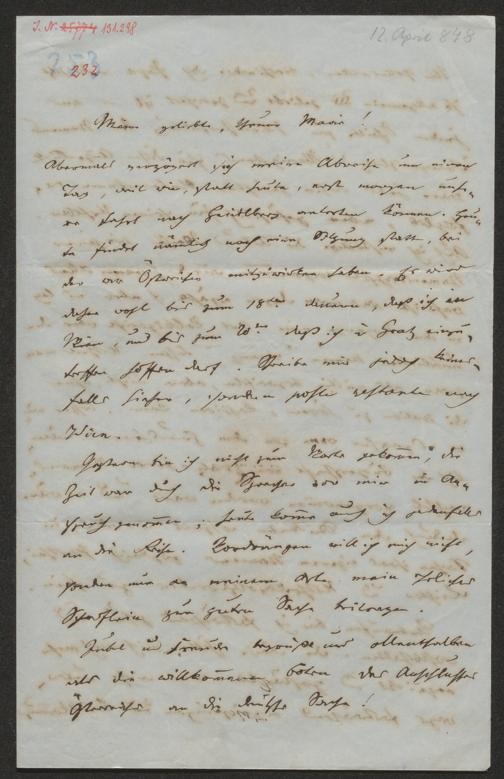 I. N. 25774 131.298
12. April 848
253
232
Meine geliebte, theure Marie!
Abermals verzögert sich meine Abreise um einen
Tag, weil wir, statt heute, erst morgen unse-
re Fahrt nach Heidelberg antreten können. Heu-
te findet nämlich noch eine Sitzung statt, bei
der wir Österreicher mitzuwirken haben. Es wird
daher wohl bis zum 18ten dauern, daß ich in
Wien, und bis zum 20ten daß ich in Gratz einzu-
treffen hoffen darf. Schreibe mir jedoch keines-
falls hieher, sondern poste restante nach
Wien.
Gestern bin ich nicht zum Worte gekommen, die
Zeit war durch die Sprecher vor mir in An-
spruch genommen; heute komme auch ich jedenfalls
an die Reihe. Vordrängen will ich mich nicht,
sondern nur an meinem Orte mein redliches
Scherflein zur guten Sache beitragen.
Jubel und Freude begrüßt uns allenthalben
als die willkommenen Boten des Anschlusses
Österreichs an die deutsche Sache!